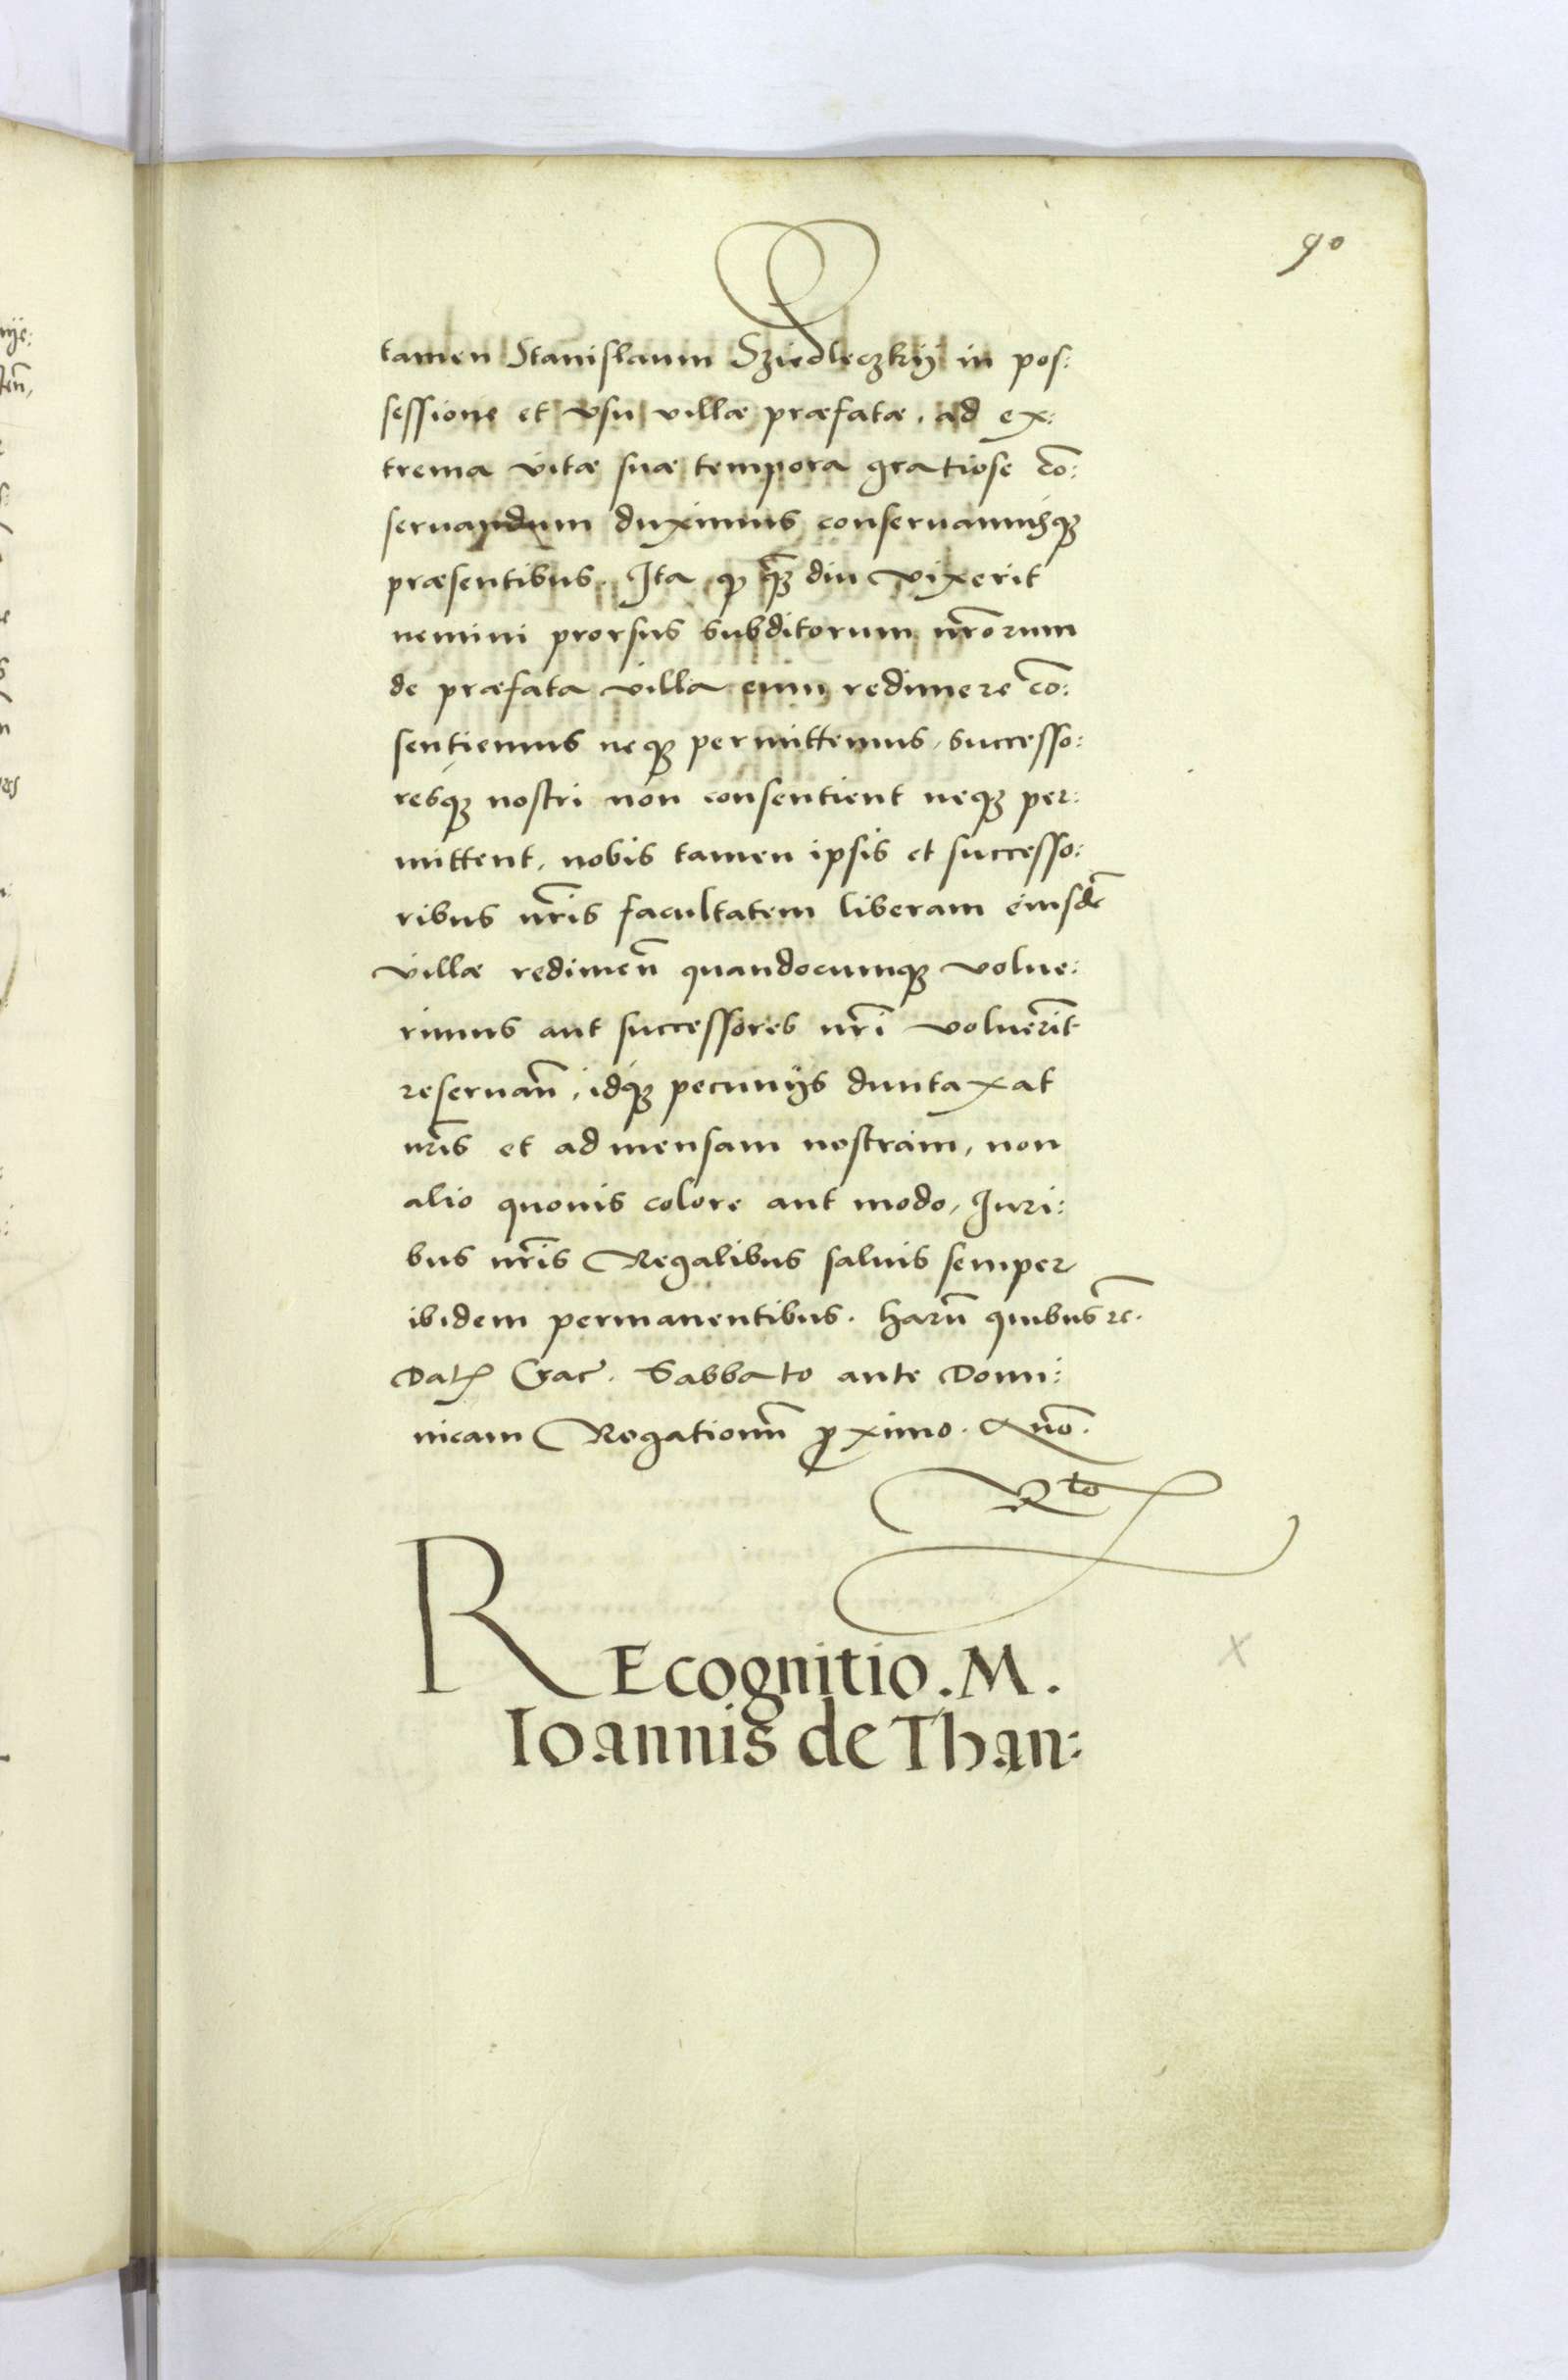 90
tamen Stanislaum Sziedleczkij in pos:
sessione et vsu villæ præfatæ, ad ex:
trema vitæ suæ tempora gratiose cō:
seruandum duximus conseruamusq3
præsentibus. Ita q̨ q̄3 diu vixerit
nemini prorsus subditorum nr̄orum
de præfata villa eum redimere cō:
sentiemus neq3 permittemus, successo:
resq3 nostri non consentient neq3 per:
mittent, nobis tamen ipsis et successo:
ribus nr̄is facultatem liberam eiusdē
villæ redimen̄ quandocumq3 volue:
rimus aut successores nr̄i voluer̄it
reseruan̄, idq3 pecunijs duntaxat
nr̄is et ad mensam nostram, non
alio quouis colore aut modo, Iuri:
bus nr̄is Regalibus saluis semper
ibidem permanentibus. harū quibus rc̄.
Datꝭ Crac̄. Sabbato ante Domi:
nicam Rogationū ꝓximo. Anō.
Qto
REcognitio. M.
Ioannis de Than: